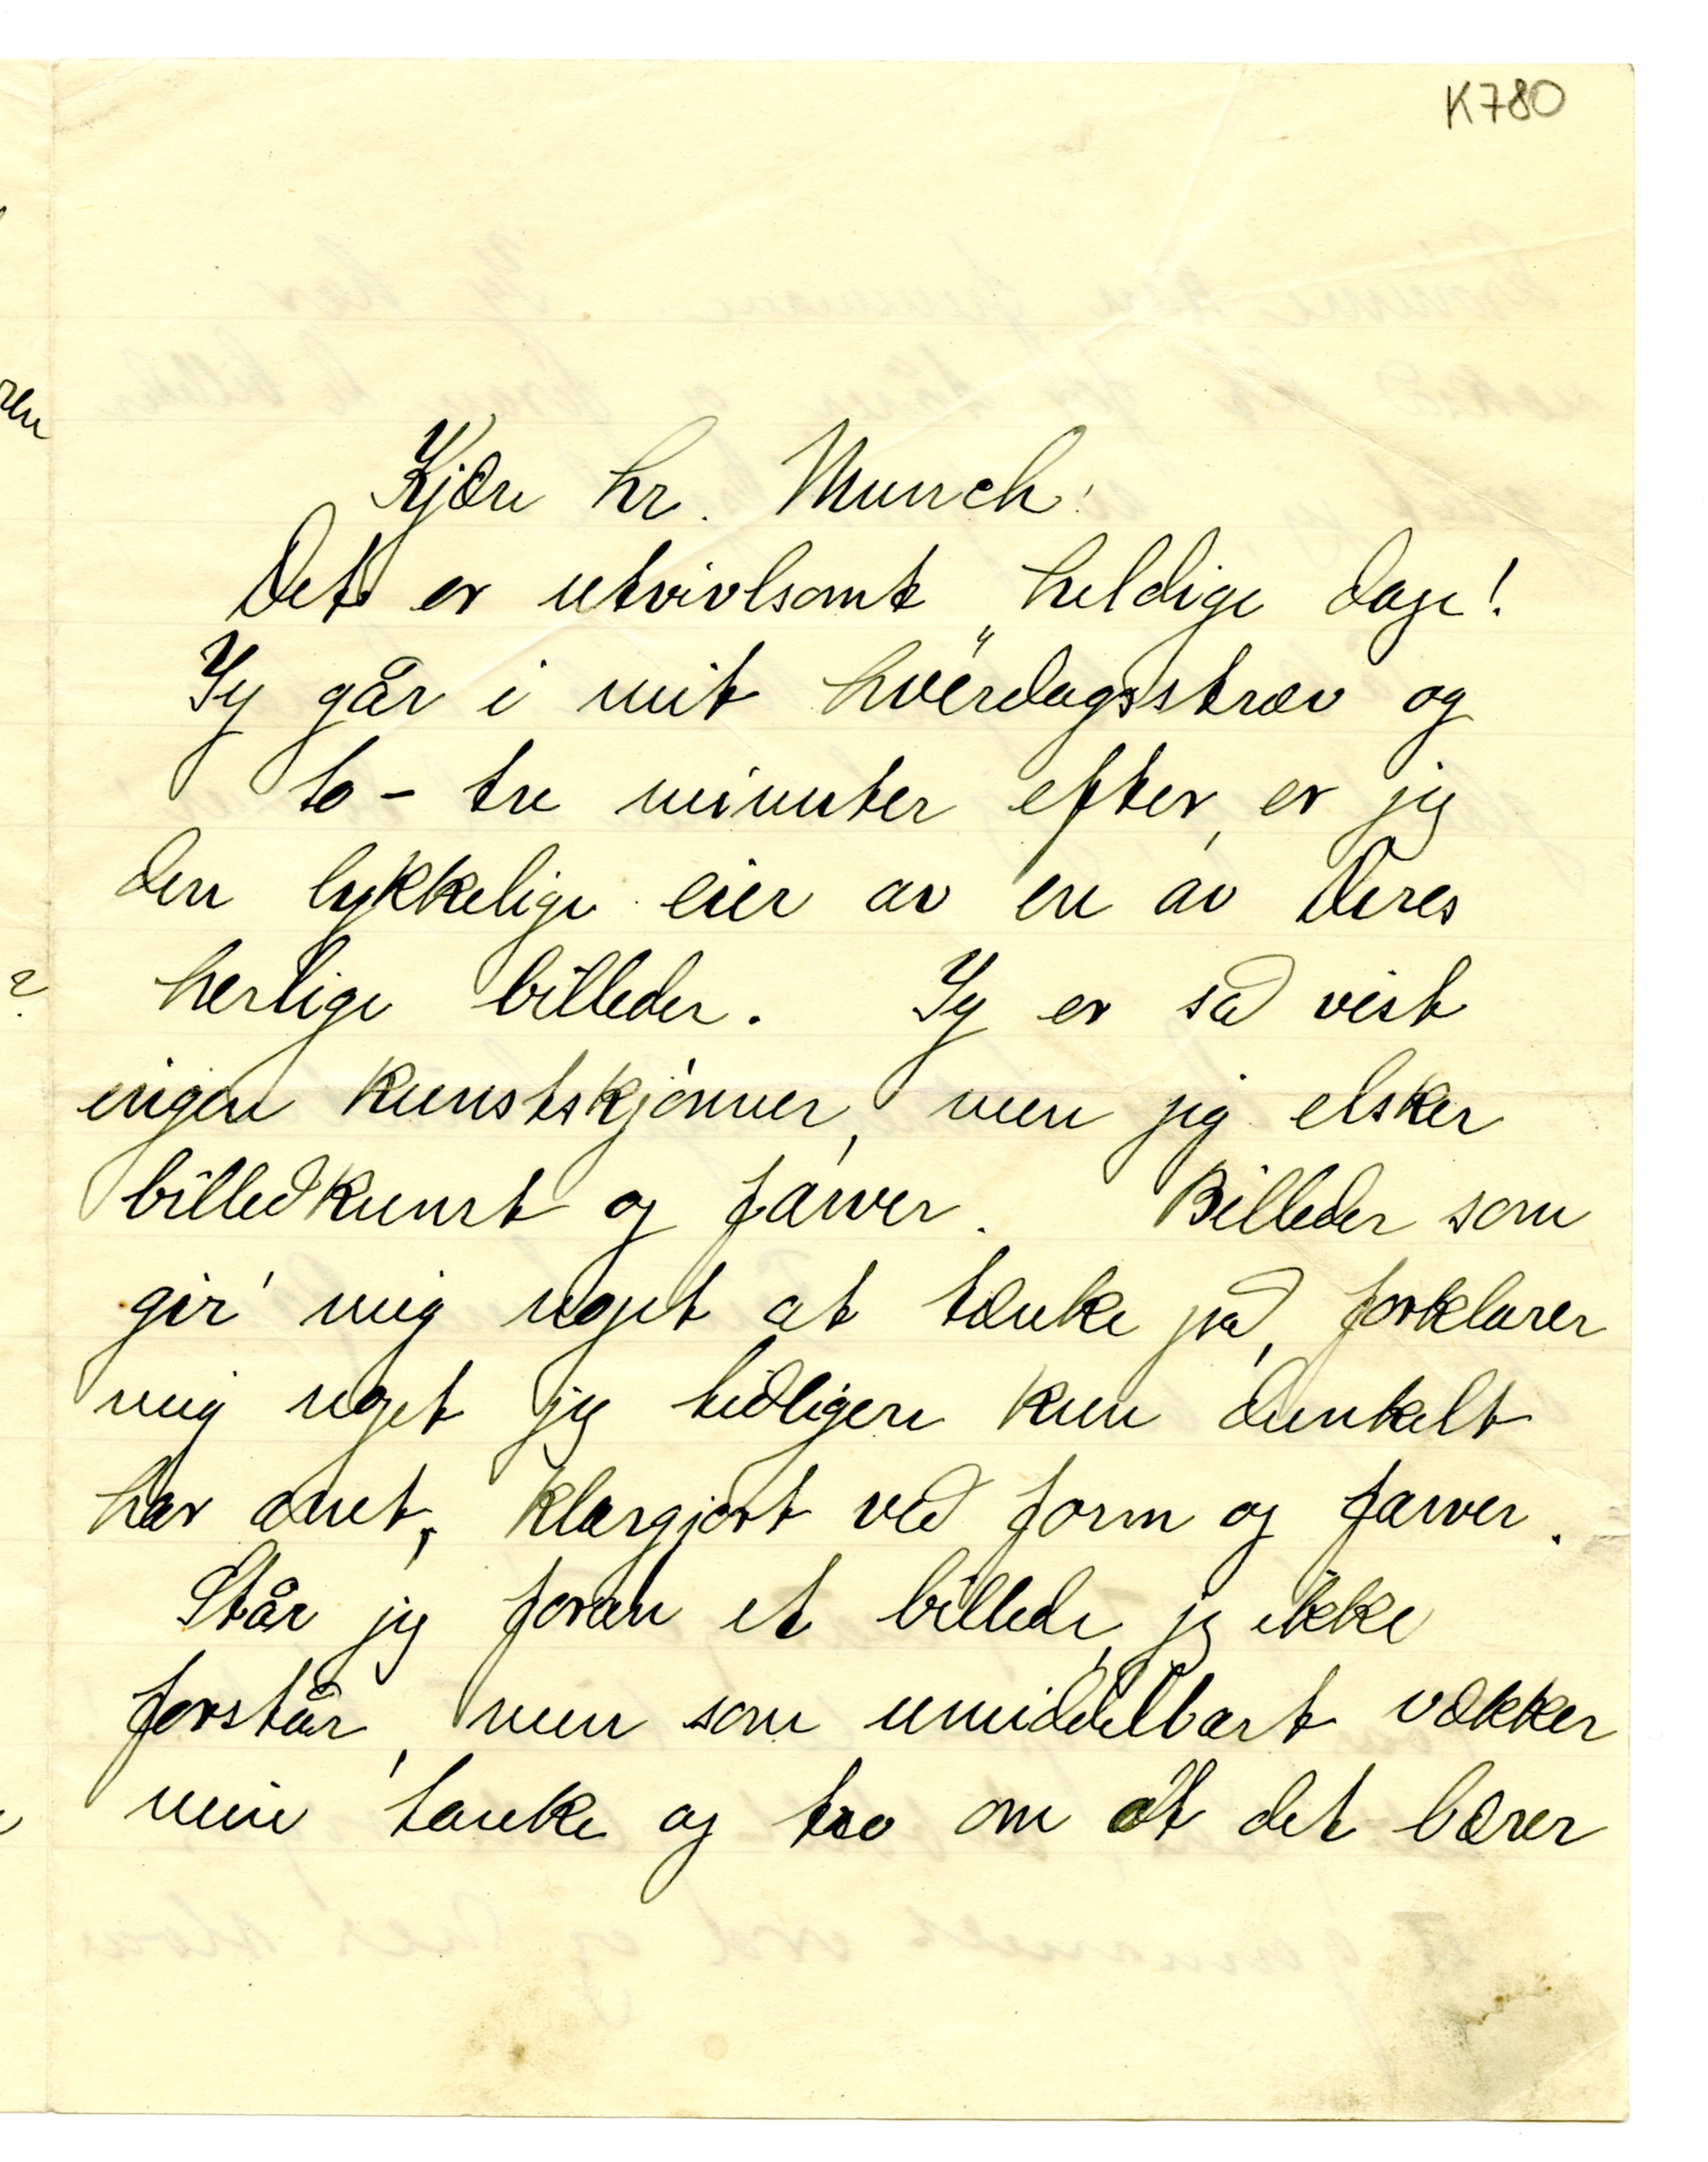 K780
Kjære hr. Munch!
Det er utvivlsomt „heldige dage!
Jeg går i mit hverdagsstræv og
to – tre minuter efter, er jeg
den lykkelige eier av en av Deres
herlige billeder. Jeg er så vist
ingen kunstskjønner, men jeg elsker
billedkunst og farver. Billeder som
gir' mig noget at tænke på, forklarer
mig noget jeg tidligere kun dunkelt
har anet, klargjort ved form og farver.
Står jeg foran et billede, jeg ikke
forstår, men som umiddelbart vækker
min tanke og tro om at det bærer